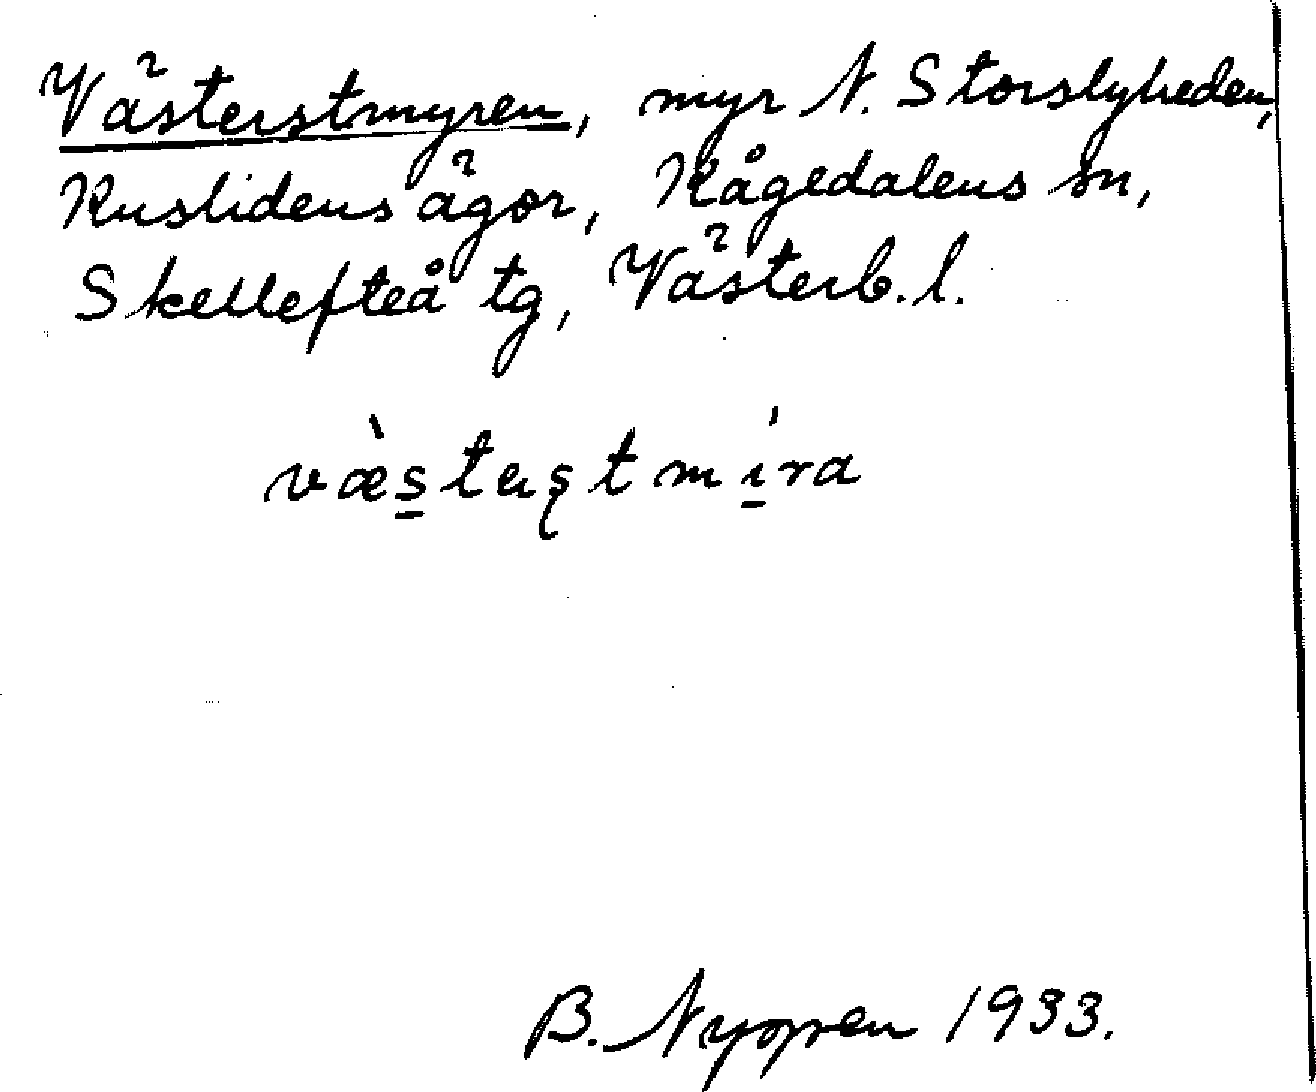 Västerstmyren, myr N. Storslyheden,
Ruslidens ägor, Kågedalens sn,
Skellefteå tg, Västerb. l.
væ̀s̲teʂtmi̲̍ra
B. Nygren 1933.